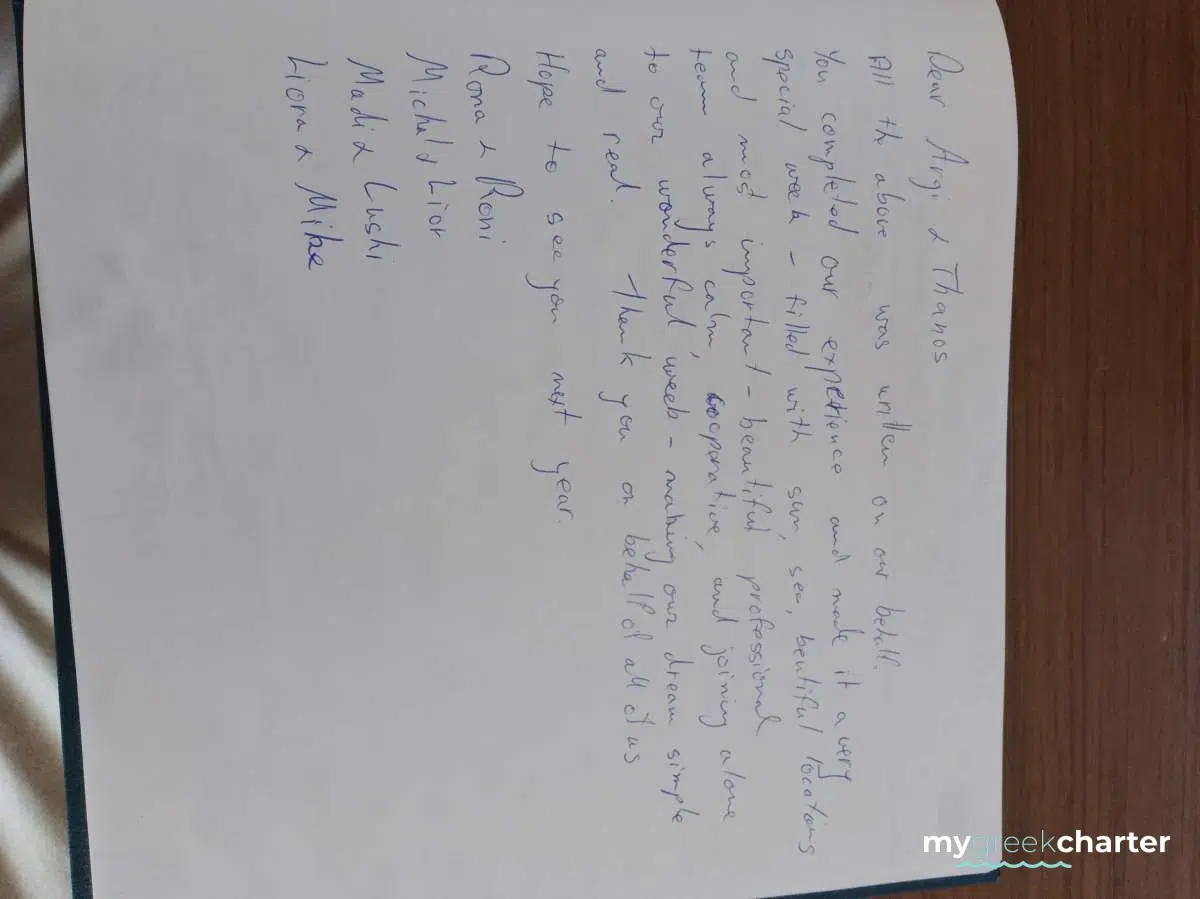 Dear Argi & Thanos
All the above was written on our behalf.
You completed our experience and made it a very
special week - filled with sun, sea, beutiful locations
and most important - beautiful professional
team always calm, cooperative, and joining alone
to our wonderful week - making our dream simple
and real. Thank you on behalf of all of us
Hope to see you next year.
Rona & Roni
Michal & Lior
Madi & Lushi
Liora & Mike
mygreekcharter